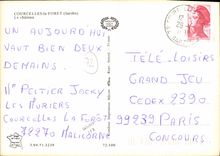 COURCELLES la FORÊT (Sarthe)
Le château
UN AUJOURD HUI
VAUT BIEN DEUX
DEMAINS.
Mr PELTIER JOCKY
LES MURIERS
COURCELLES LA FORET
72270 MALICORNE
TÉLÉ. LOISIRS
GRAND JEU
CEDEX 2390
99239 PARIS
CONCOURS